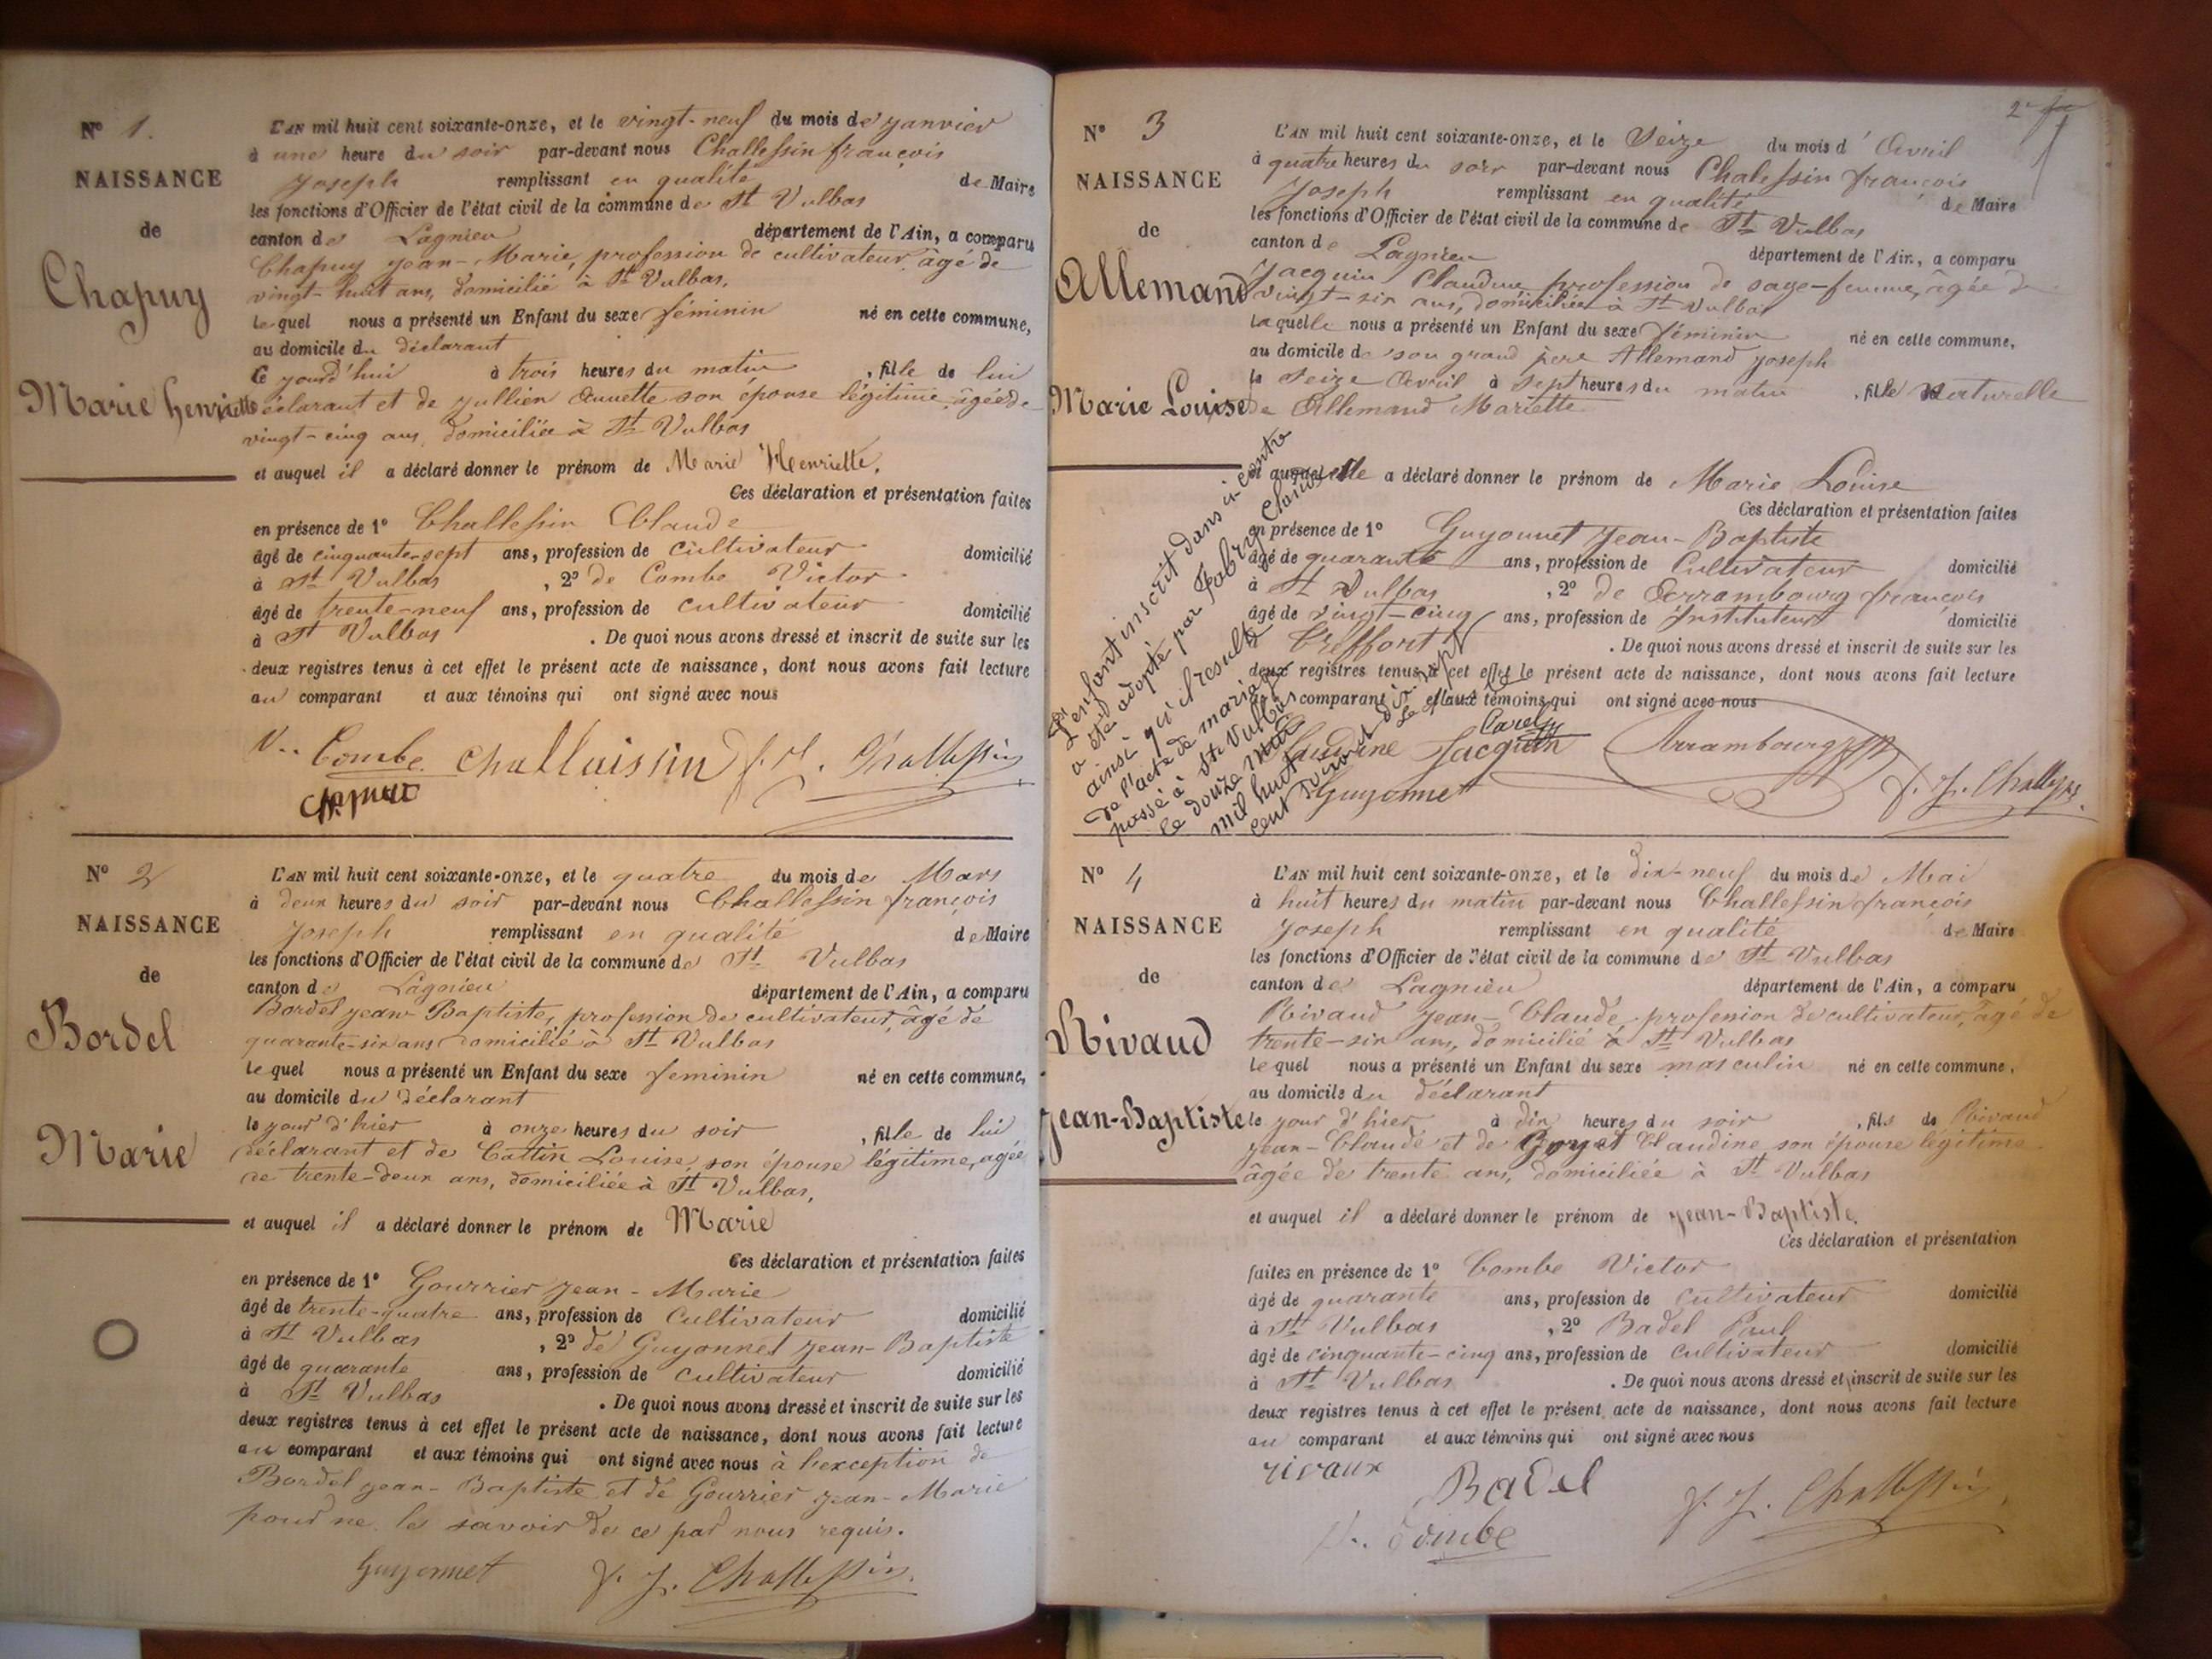 N° 1.
NAISSANCE
de
Chapuy
Marie henriette
L'AN mil huit cent soixante-onze, et le vingt-neuf du mois de janvier
à une heure du soir par-devant nous Challessin françois
Joseph remplissant en qualité de Maire
les fonctions d'Officier de l'état civil de la commune de St Vulbas
canton de Lagnieu département de l'Ain, a comparu
Chapuy Jean-Marie, profession de cultivateur, âgé de
vingt-huit ans, domicilié à St Vulbas.
lequel nous a présenté un Enfant du sexe féminin né en cette commune,
au domicile du déclarant
Ce jourd'hui à trois heures du matin, fille de lui
déclarant et de Jullien Annette son épouse légitime, âgée de
vingt-cinq ans, domiciliée à St Vulbas
et auquel il a déclaré donner le prénom de Marie Henriette.
Ces déclaration et présentation faites
en présence de 1° Challessin Claude
âgé de cinquante-sept ans, profession de cultivateur domicilié
à St Vulbas, 2° de Combe Victor
âgé de trente-neuf ans, profession de cultivateur domicilié
à St Vulbas. De quoi nous avons dressé et inscrit de suite sur les
deux registres tenus à cet effet le présent acte de naissance, dont nous avons fait lecture
au comparant et aux témoins qui ont signé avec nous
V.. Combe. Challaissin f. J. Challessin
N° 2
NAISSANCE
de
Bordel
Marie
L'AN mil huit cent soixante-onze, et le quatre du mois de Mars
à deux heures du soir par-devant nous Challessin françois
Joseph remplissant en qualité de Maire
les fonctions d'Officier de l'état civil de la commune de St Vulbas
canton de Lagnieu département de l'Ain, a comparu
Bordel Jean-Baptiste, profession de cultivateur, âgé de
quarante-six ans domicilié à St Vulbas
lequel nous a présenté un Enfant du sexe feminin né en cette commune,
au domicile du déclarant
le jour d'hier à onze heures du soir, fille de lui
déclarant et de Cattin Louise, son épouse légitime, agée
de trente-deux ans, domiciliée à St Vulbas,
et auquel il a déclaré donner le prénom de Marie
Ces déclaration et présentation faites
en présence de 1° Gourrier Jean-Marie
âgé de trente-quatre ans, profession de cultivateur domicilié
à St Vulbas, 2° de Guyonnet Jean-Baptiste
âgé de quarante ans, profession de cultivateur domicilié
à St Vulbas. De quoi nous avons dressé et inscrit de suite sur les
deux registres tenus à cet effet le présent acte de naissance, dont nous avons fait lecture
au comparant et aux témoins qui ont signé avec nous à l'exception de
Bordel Jean-Baptiste et de Gourrier Jean-Marie
pour ne le savoir de ce par nous requis.
Guyonnet f. J. Challessin.
2
N° 3
NAISSANCE
de
Allemand
Marie Louise
L'AN mil huit cent soixante-onze, et le Seize du mois d'Avril
à quatre heures du soir par-devant nous Chalessin françois
Joseph remplissant en qualité de Maire
les fonctions d'Officier de l'état civil de la commune de St Vulbas
canton de Lagnieu département de l'Ain, a comparu
Jacquin Claudine profession de sage-femme, âgée de
vingt-six ans, domiciliée à St Vulbas
laquelle nous a présenté un Enfant du sexe féminin né en cette commune,
au domicile de son grand père Allemand Joseph
le Seize Avril à Sept heures du matin, fille naturelle
de Allemand Mariette
et auquel elle a déclaré donner le prénom de Marie Louise
Ces déclaration et présentation faites
en présence de 1° Guyonnet Jean-Baptiste
âgé de quarante ans, profession de Cultivateur domicilié
à St Vulbas, 2° de Arrambourg françois
âgé de vingt-cinq ans, profession de Instituteur domicilié
à Treffort. De quoi nous avons dressé et inscrit de suite sur les
deux registres tenus à cet effet le présent acte de naissance, dont nous avons fait lecture
comparant et aux témoins qui ont signé avec nous
Claudine Jacquin Arrambourg
Guyonnet f. J. Challessin
L'enfant inscrit dans ci-contre
a été adopté par Fabry Claude
ainsi qu'il résulte
de l'acte de mariage
passé à St Vulbas
le douze mai
mil huit
cent soixante dix sept
N° 4
NAISSANCE
de
Rivaud
Jean-Baptiste
L'AN mil huit cent soixante-onze, et le dix-neuf du mois de Mai
à huit heures du matin par-devant nous Challessin françois
Joseph remplissant en qualité de Maire
les fonctions d'Officier de l'état civil de la commune de St Vulbas
canton de Lagnieu département de l'Ain, a comparu
Rivaud Jean-Claude profession de cultivateur, âgé de
trente-six ans, domicilié à St Vulbas
lequel nous a présenté un Enfant du sexe masculin né en cette commune,
au domicile du déclarant
le jour d'hier à dix heures du soir, fils de Rivaud
Jean-Claude et de Goyet Claudine son épouse légitime
âgée de trente ans, domiciliée à St Vulbas
et auquel il a déclaré donner le prénom de Jean-Baptiste.
Ces déclaration et présentation
faites en présence de 1° Combe Victor
âgé de quarante ans, profession de cultivateur domicilié
à St Vulbas, 2° Badel Paul
âgé de cinquante-cinq ans, profession de cultivateur domicilié
à St Vulbas. De quoi nous avons dressé et inscrit de suite sur les
deux registres tenus à cet effet le présent acte de naissance, dont nous avons fait lecture
au comparant et aux témoins qui ont signé avec nous
rivaux Badel f. J. Challessin
V. Combe